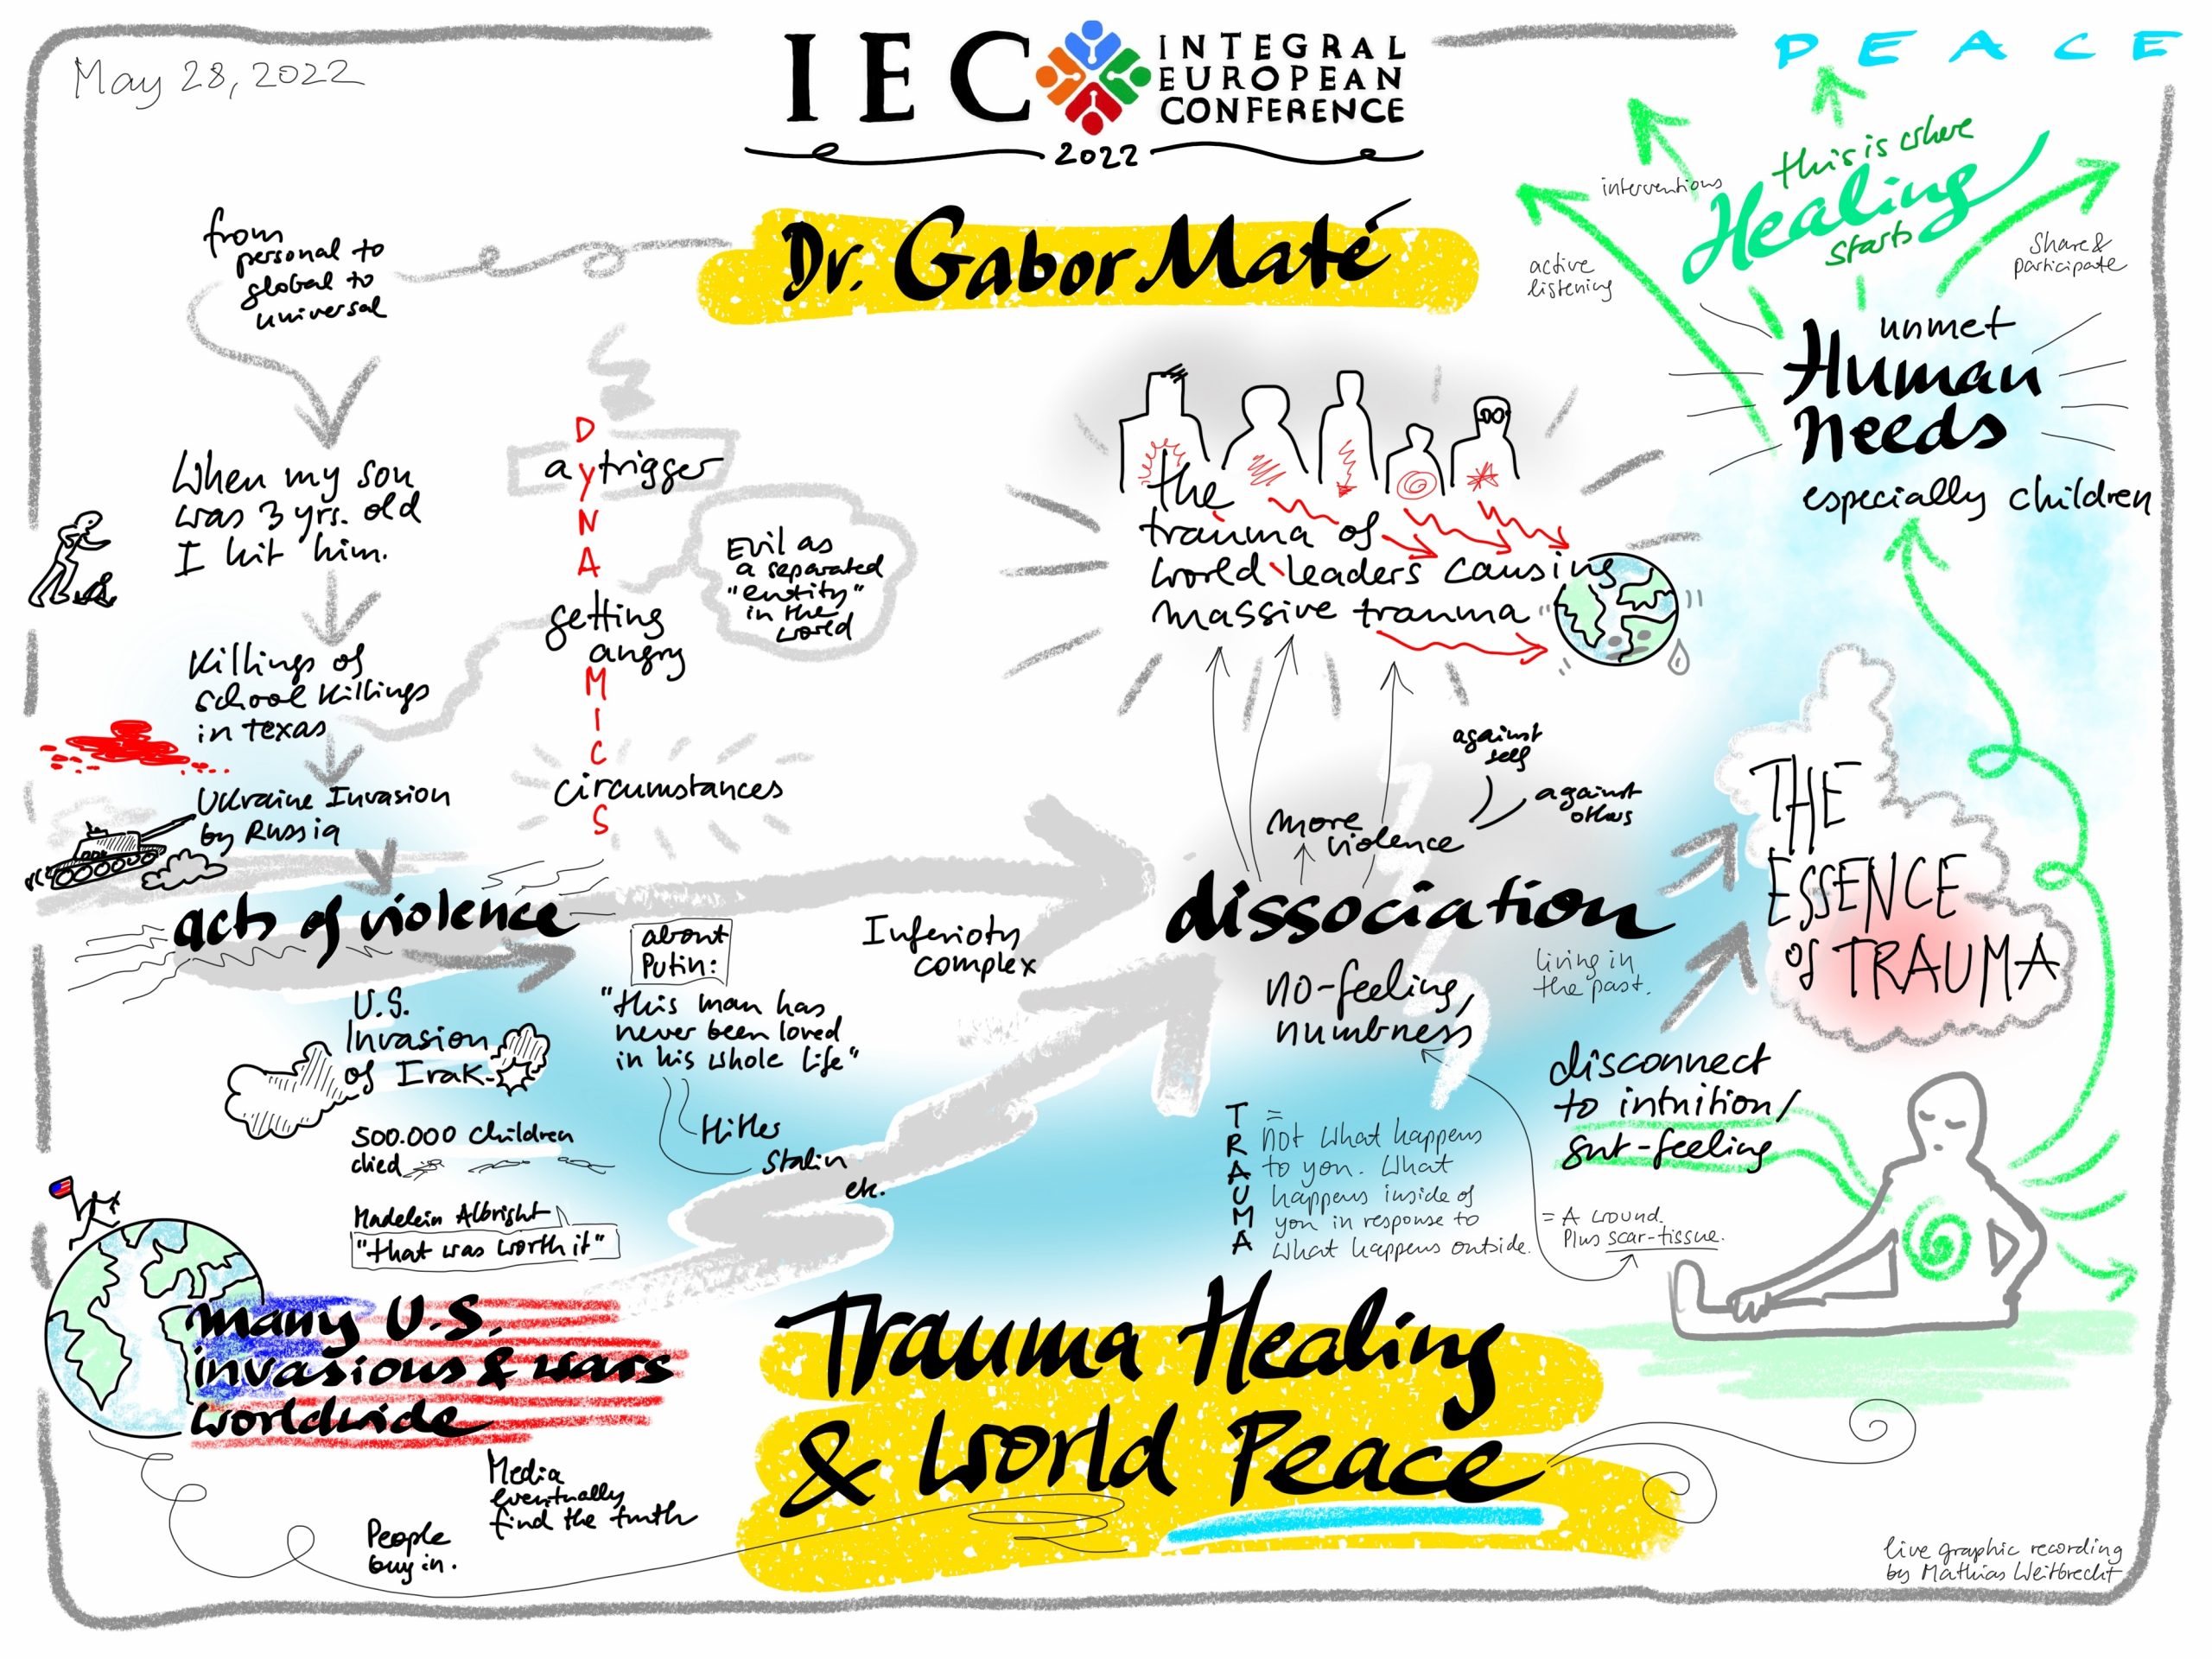 May 28, 2022
IEC
INTEGRAL
EUROPEAN
CONFERENCE
2022
PEACE
Dr. Gabor Maté
from
personal to
global to
universal
When my son
was 3 yrs. old
I hit him.
Killings of
school killings
in Texas
Ukraine Invasion
by Russia
acts of violence
DYNAMICS
a trigger
getting
angry
circumstances
Evil as
a separated
"entity"
in the
world
U.S.
Invasion
of Irak
500.000 children
died
Madelein Albright
"that was worth it"
about
Putin:
"this man has
never been loved
in his whole life"
Hitler
Stalin
etc.
Inferioty
complex
many U.S.
invasions & wars
worldwide
Media
eventually
find the truth
People
buy in.
the
trauma of
world leaders causing
massive trauma
against
self
against
others
more
violence
dissociation
no-feeling,
numbness
living in
the past.
TRAUMA
=
not what happens
to you. What
happens inside of
you in response to
what happens outside.
= A wound.
Plus scar-tissue.
disconnect
to intuition/
gut-feeling
THE
ESSENCE
of TRAUMA
unmet
Human
needs
especially children
this is where
Healing
starts
interventions
active
listening
share &
participate
Trauma Healing
& World Peace
live graphic recording
by Mathias Weitbrecht